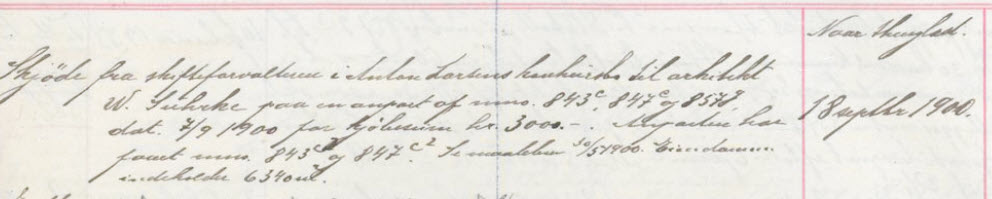 Naar thinglæst.
Skjöde fra skifteforvalteren i Anton Larsens konkursbo til arkitekt
W. Suhrke paa en anpart af mno. 843c, 847c og 857g,
dat. 7/9 1900 for kjöbesum kr. 3000.-. Anparten har
faaet mno. 843c2 og 847c2. Se maalebrev 30/5 1900. Eiendommen
indeholder 6340 m2.
18 septbr 1900.